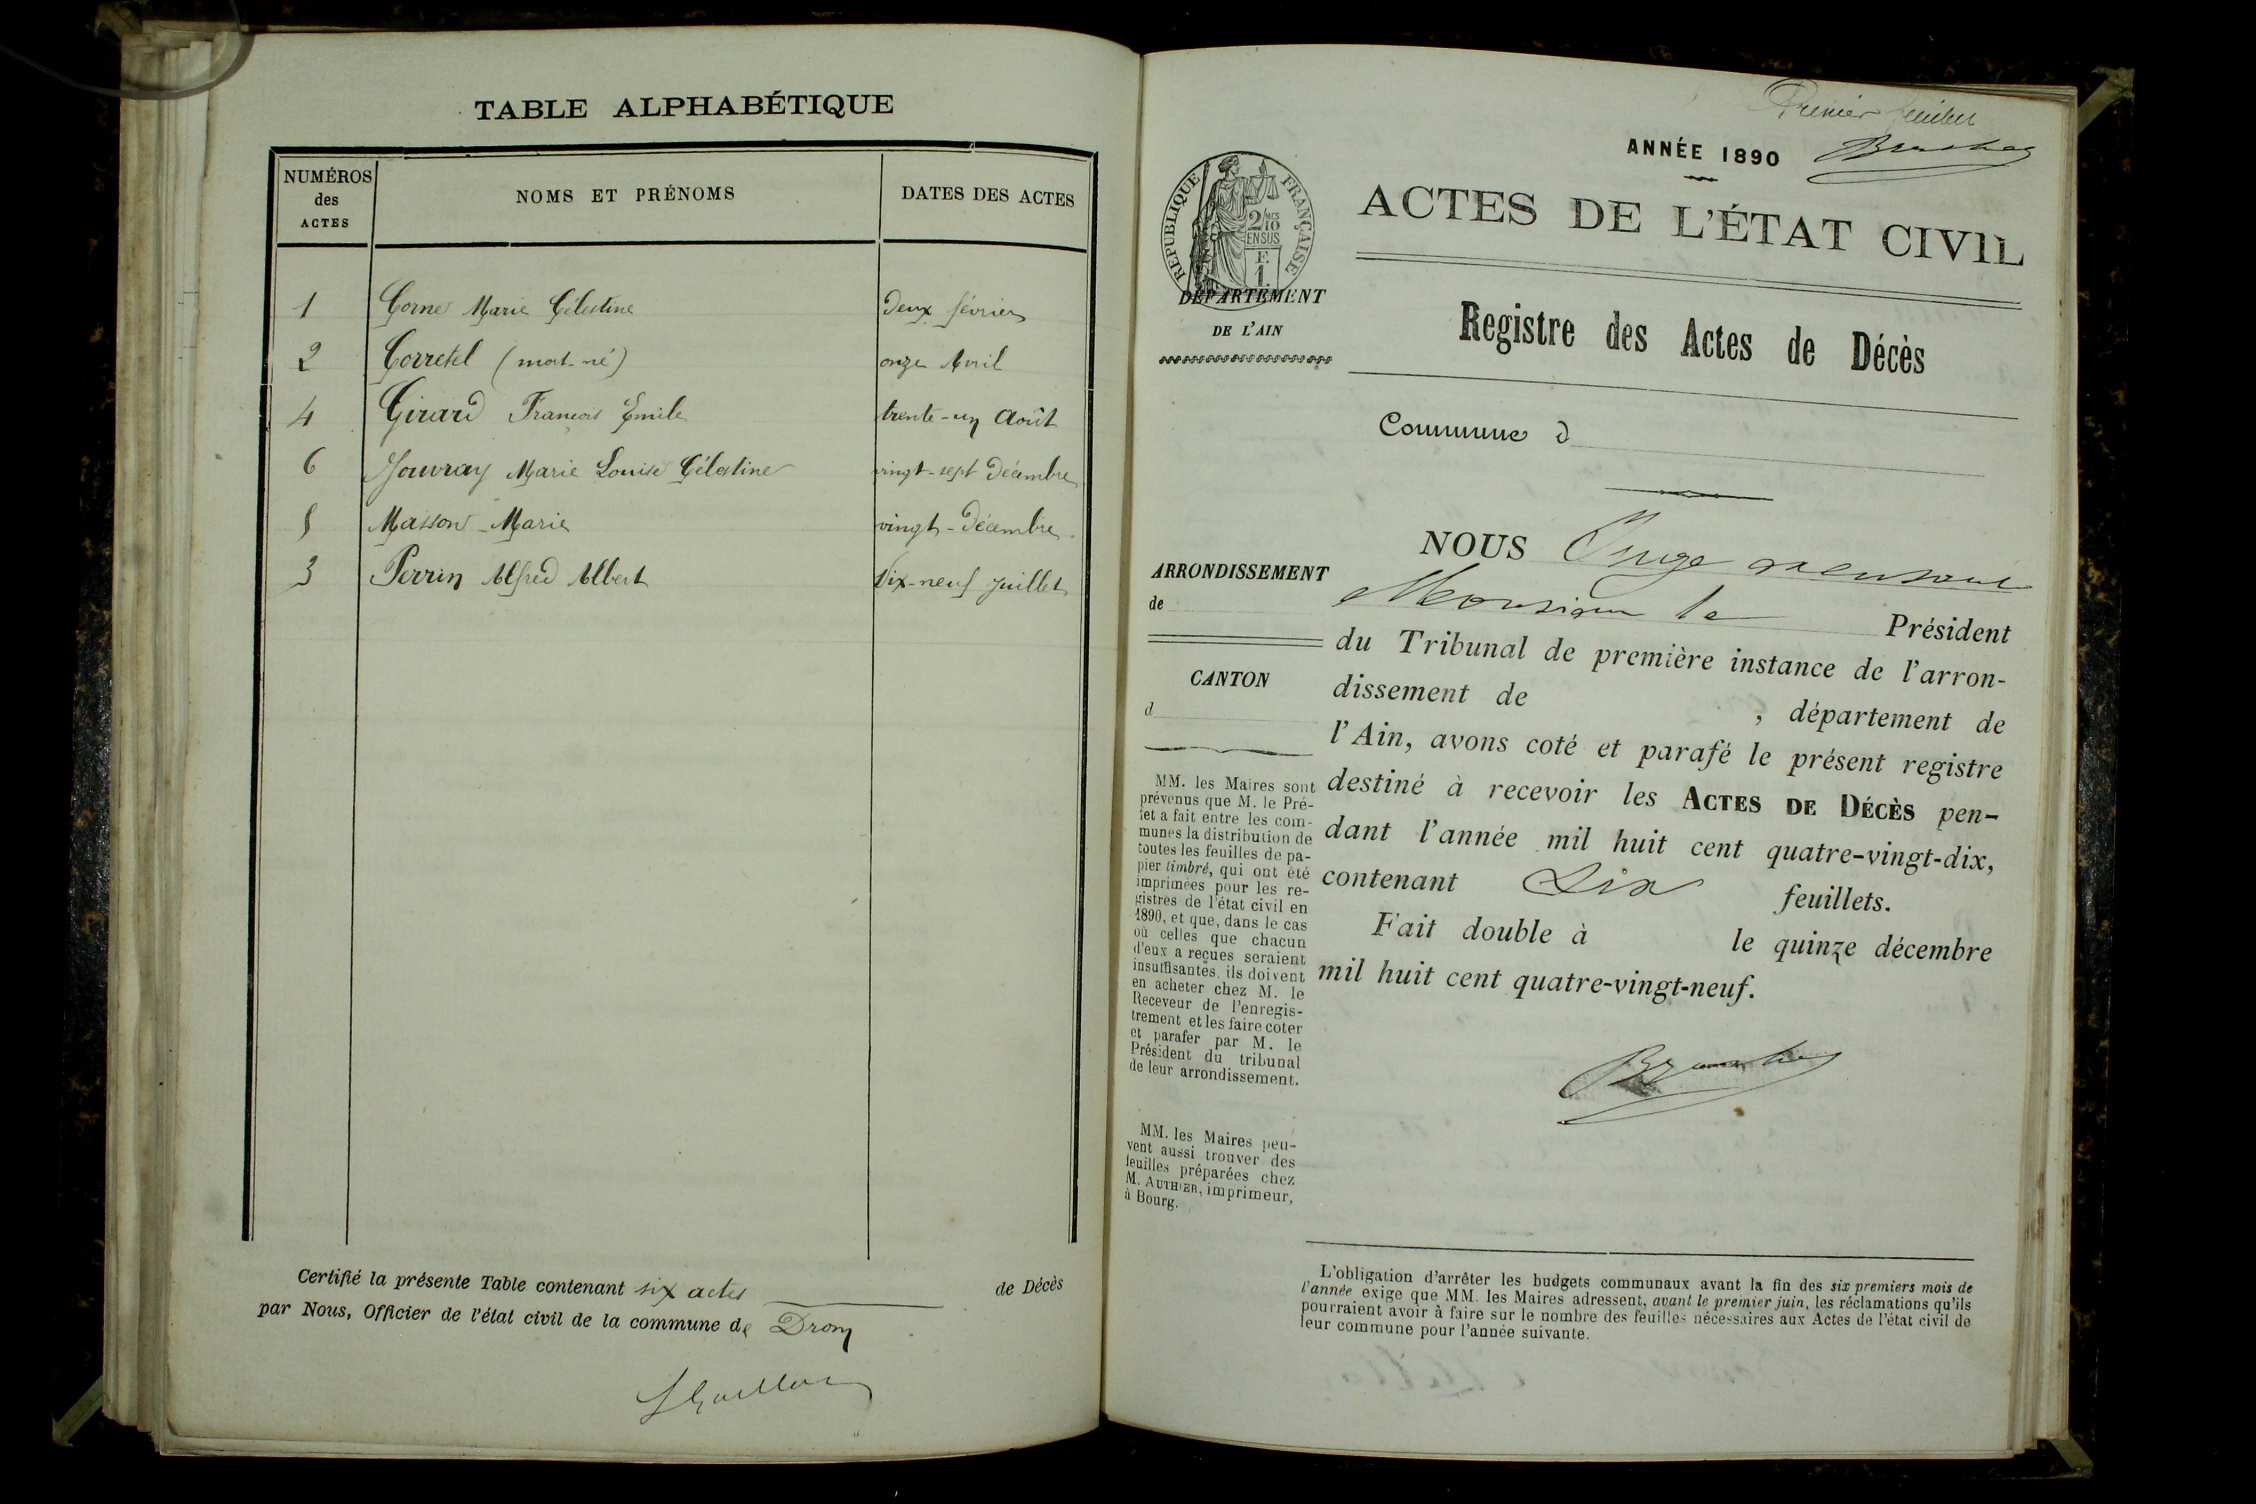 TABLE ALPHABÉTIQUE
NUMÉROS des ACTES
NOMS ET PRÉNOMS
DATES DES ACTES
1 Corne Marie Célestine Deux février
2 Corretel (mort-né) onze Avril
4 Girard François Emile trente-un Août
6 Jouvray Marie Louise Célestine vingt-sept Décembre
5 Masson Marie vingt-Décembre
3 Perrin Alfred Albert Dix-neuf Juillet
Certifié la présente Table contenant six actes de Décès
par Nous, Officier de l'état civil de la commune de Drom
Premier feuillet
ANNÉE 1890
RÉPUBLIQUE FRANÇAISE
2/10 MES
EN SUS
F.
1.
ACTES DE L'ÉTAT CIVIL
DÉPARTEMENT
DE L'AIN
Registre des Actes de Décès
Commune d
NOUS Juge
ARRONDISSEMENT
de
Monsieur le Président
du Tribunal de première instance de l'arron-
dissement de , département de
l'Ain, avons coté et parafé le présent registre
destiné à recevoir les ACTES DE DÉCÈS pen-
dant l'année mil huit cent quatre-vingt-dix,
contenant Six feuillets.
Fait double à le quinze décembre
mil huit cent quatre-vingt-neuf.
CANTON
d
MM. les Maires sont
prévenus que M. le Pré-
fet a fait entre les com-
munes la distribution de
toutes les feuilles de pa-
pier timbré, qui ont été
imprimées pour les re-
gistres de l'état civil en
1890, et que, dans le cas
où celles que chacun
d'eux a reçues seraient
insuffisantes, ils doivent
en acheter chez M. le
Receveur de l'enregis-
trement et les faire coter
et parafer par M. le
Président du tribunal
de leur arrondissement.
MM. les Maires peu-
vent aussi trouver des
feuilles préparées chez
M. AUTHIER, imprimeur,
à Bourg.
L'obligation d'arrêter les budgets communaux avant la fin des six premiers mois de
l'année exige que MM. les Maires adressent, avant le premier juin, les réclamations qu'ils
pourraient avoir à faire sur le nombre des feuilles nécessaires aux Actes de l'état civil de
leur commune pour l'année suivante.